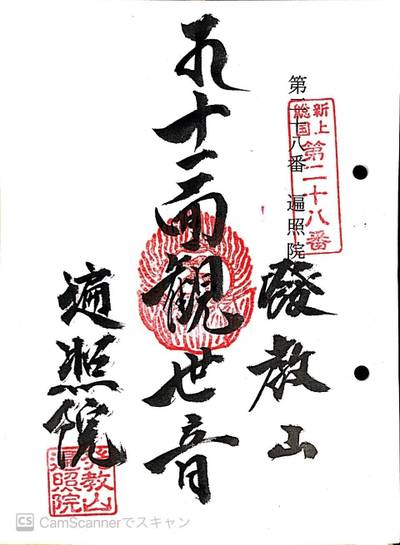 新上総国 第二十八番
第二十八番 遍照院
發教山
十一面観世音
遍照院
教山
遍照院
CS CamScannerでスキャン